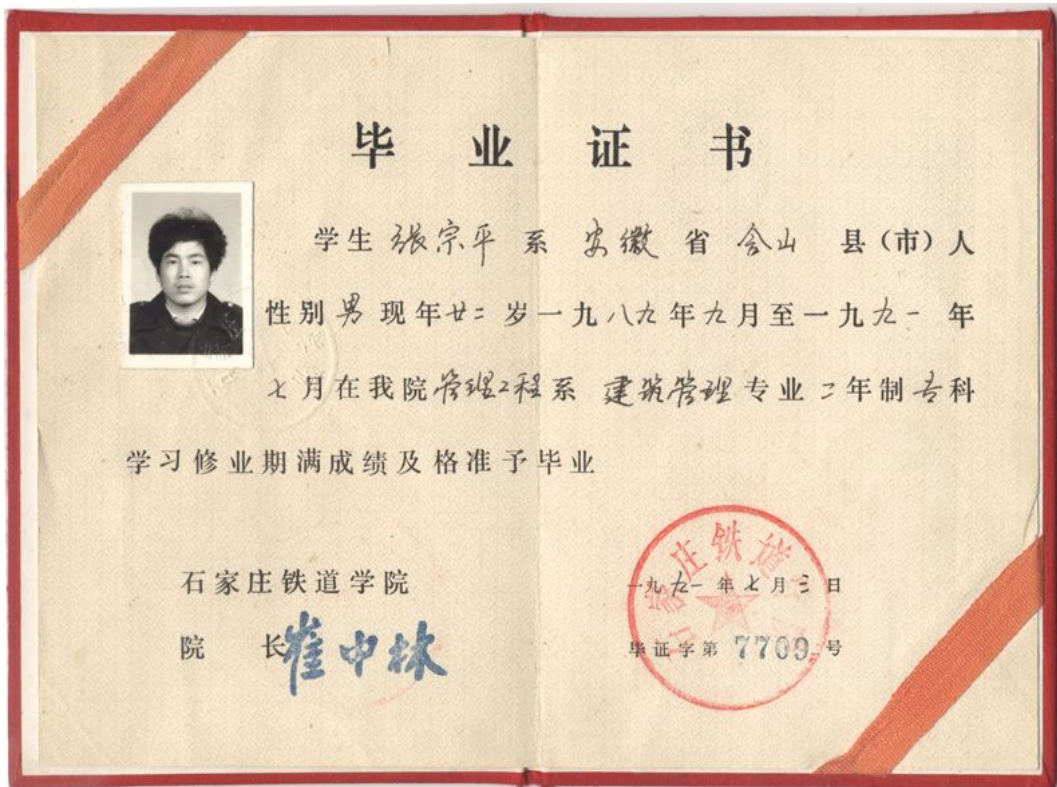 毕业证书
学生 张宗平 系 安徽 省 含山 县(市)人
性别 男 现年 廿二 岁一九八九年九月至一九九一 年
七月在我院管理工程系 建筑管理 专业 二年制专科
学习修业期满成绩及格准予毕业
石家庄铁道学院
院 长 崔中林
一九九一年七月三日
毕证字第 7709 号
家庄铁道